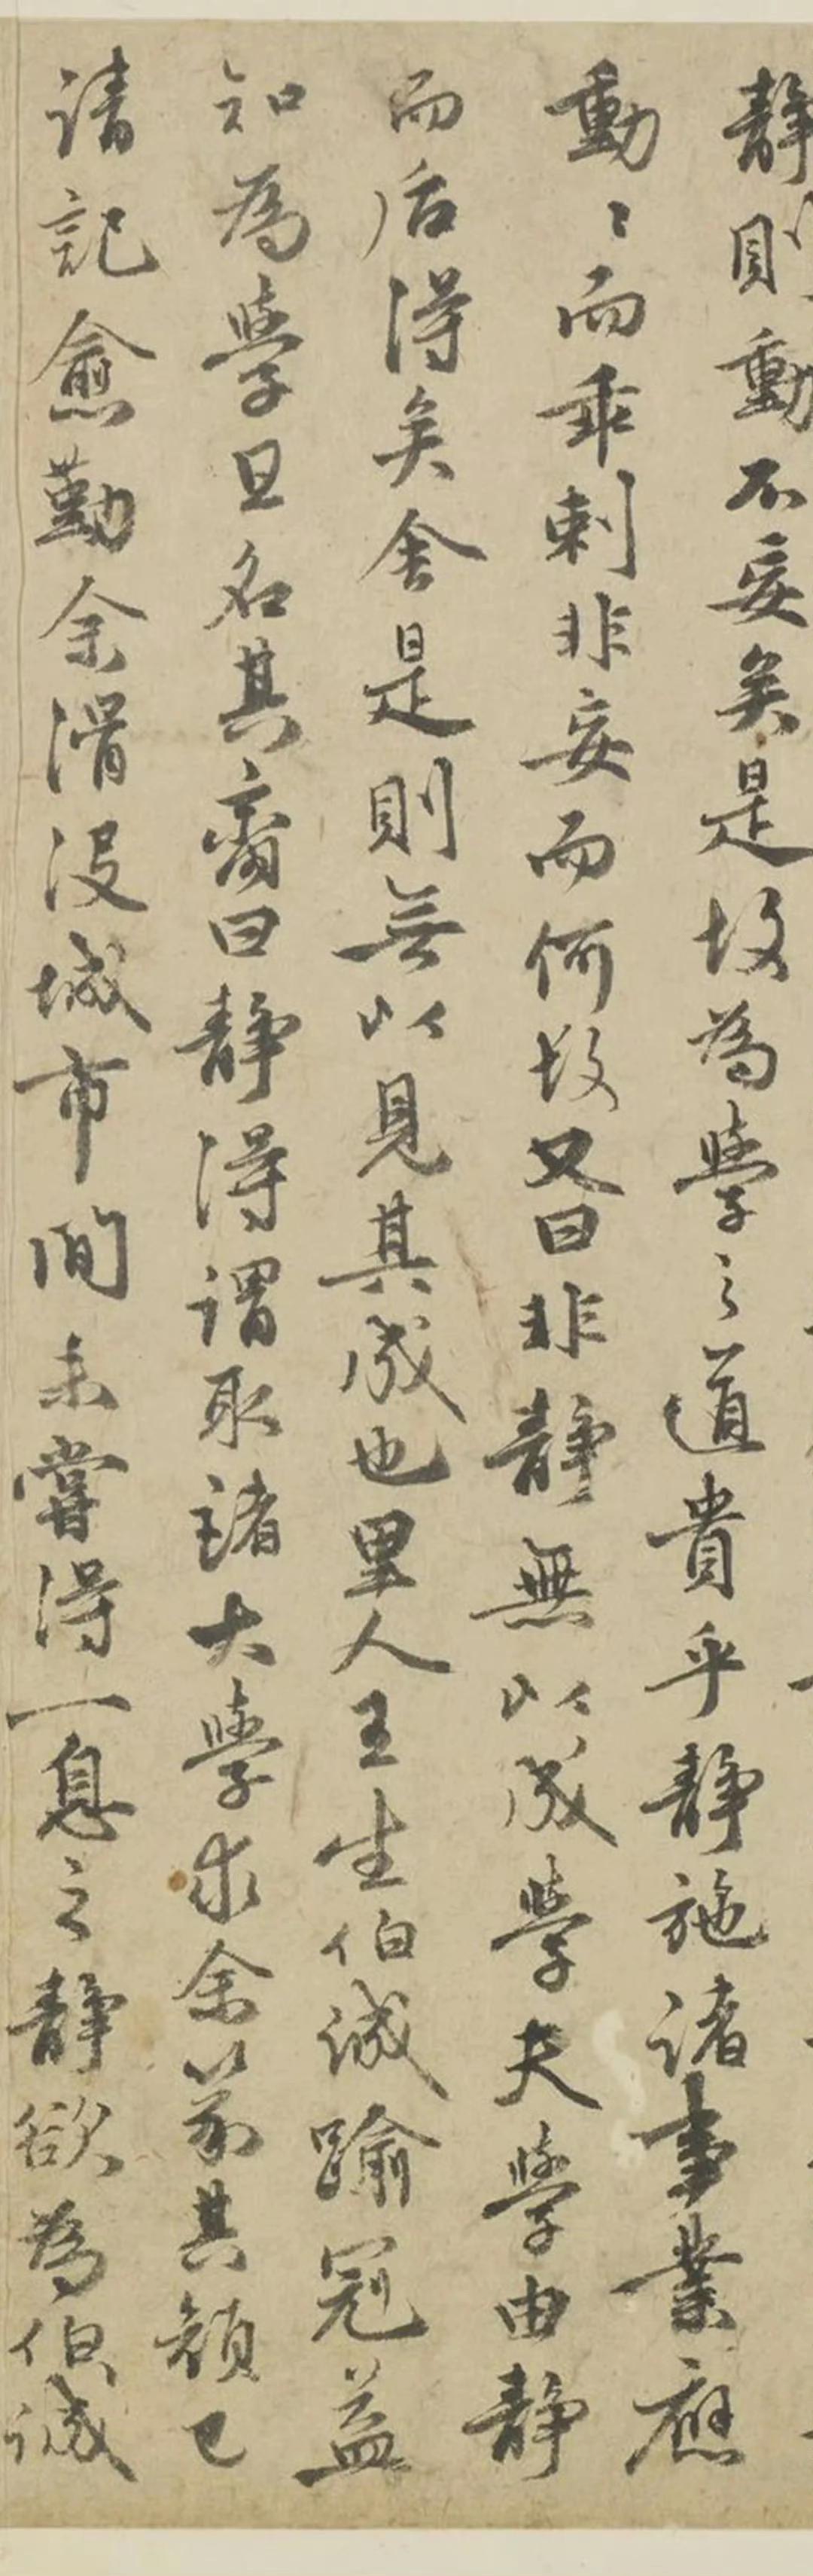 静則動不妄矣是故為學之道貴乎静施諸事業應
動〻而乖剌非妄而何故又曰非静無以成學夫學由静
而后得矣舍是則無以見其成也里人王生伯誠踰冠益
知為學且名其齋曰静得謂取諸大學求余篆其顔已
請記愈勤余滑沒城市間未嘗得一息之静欲為伯誠